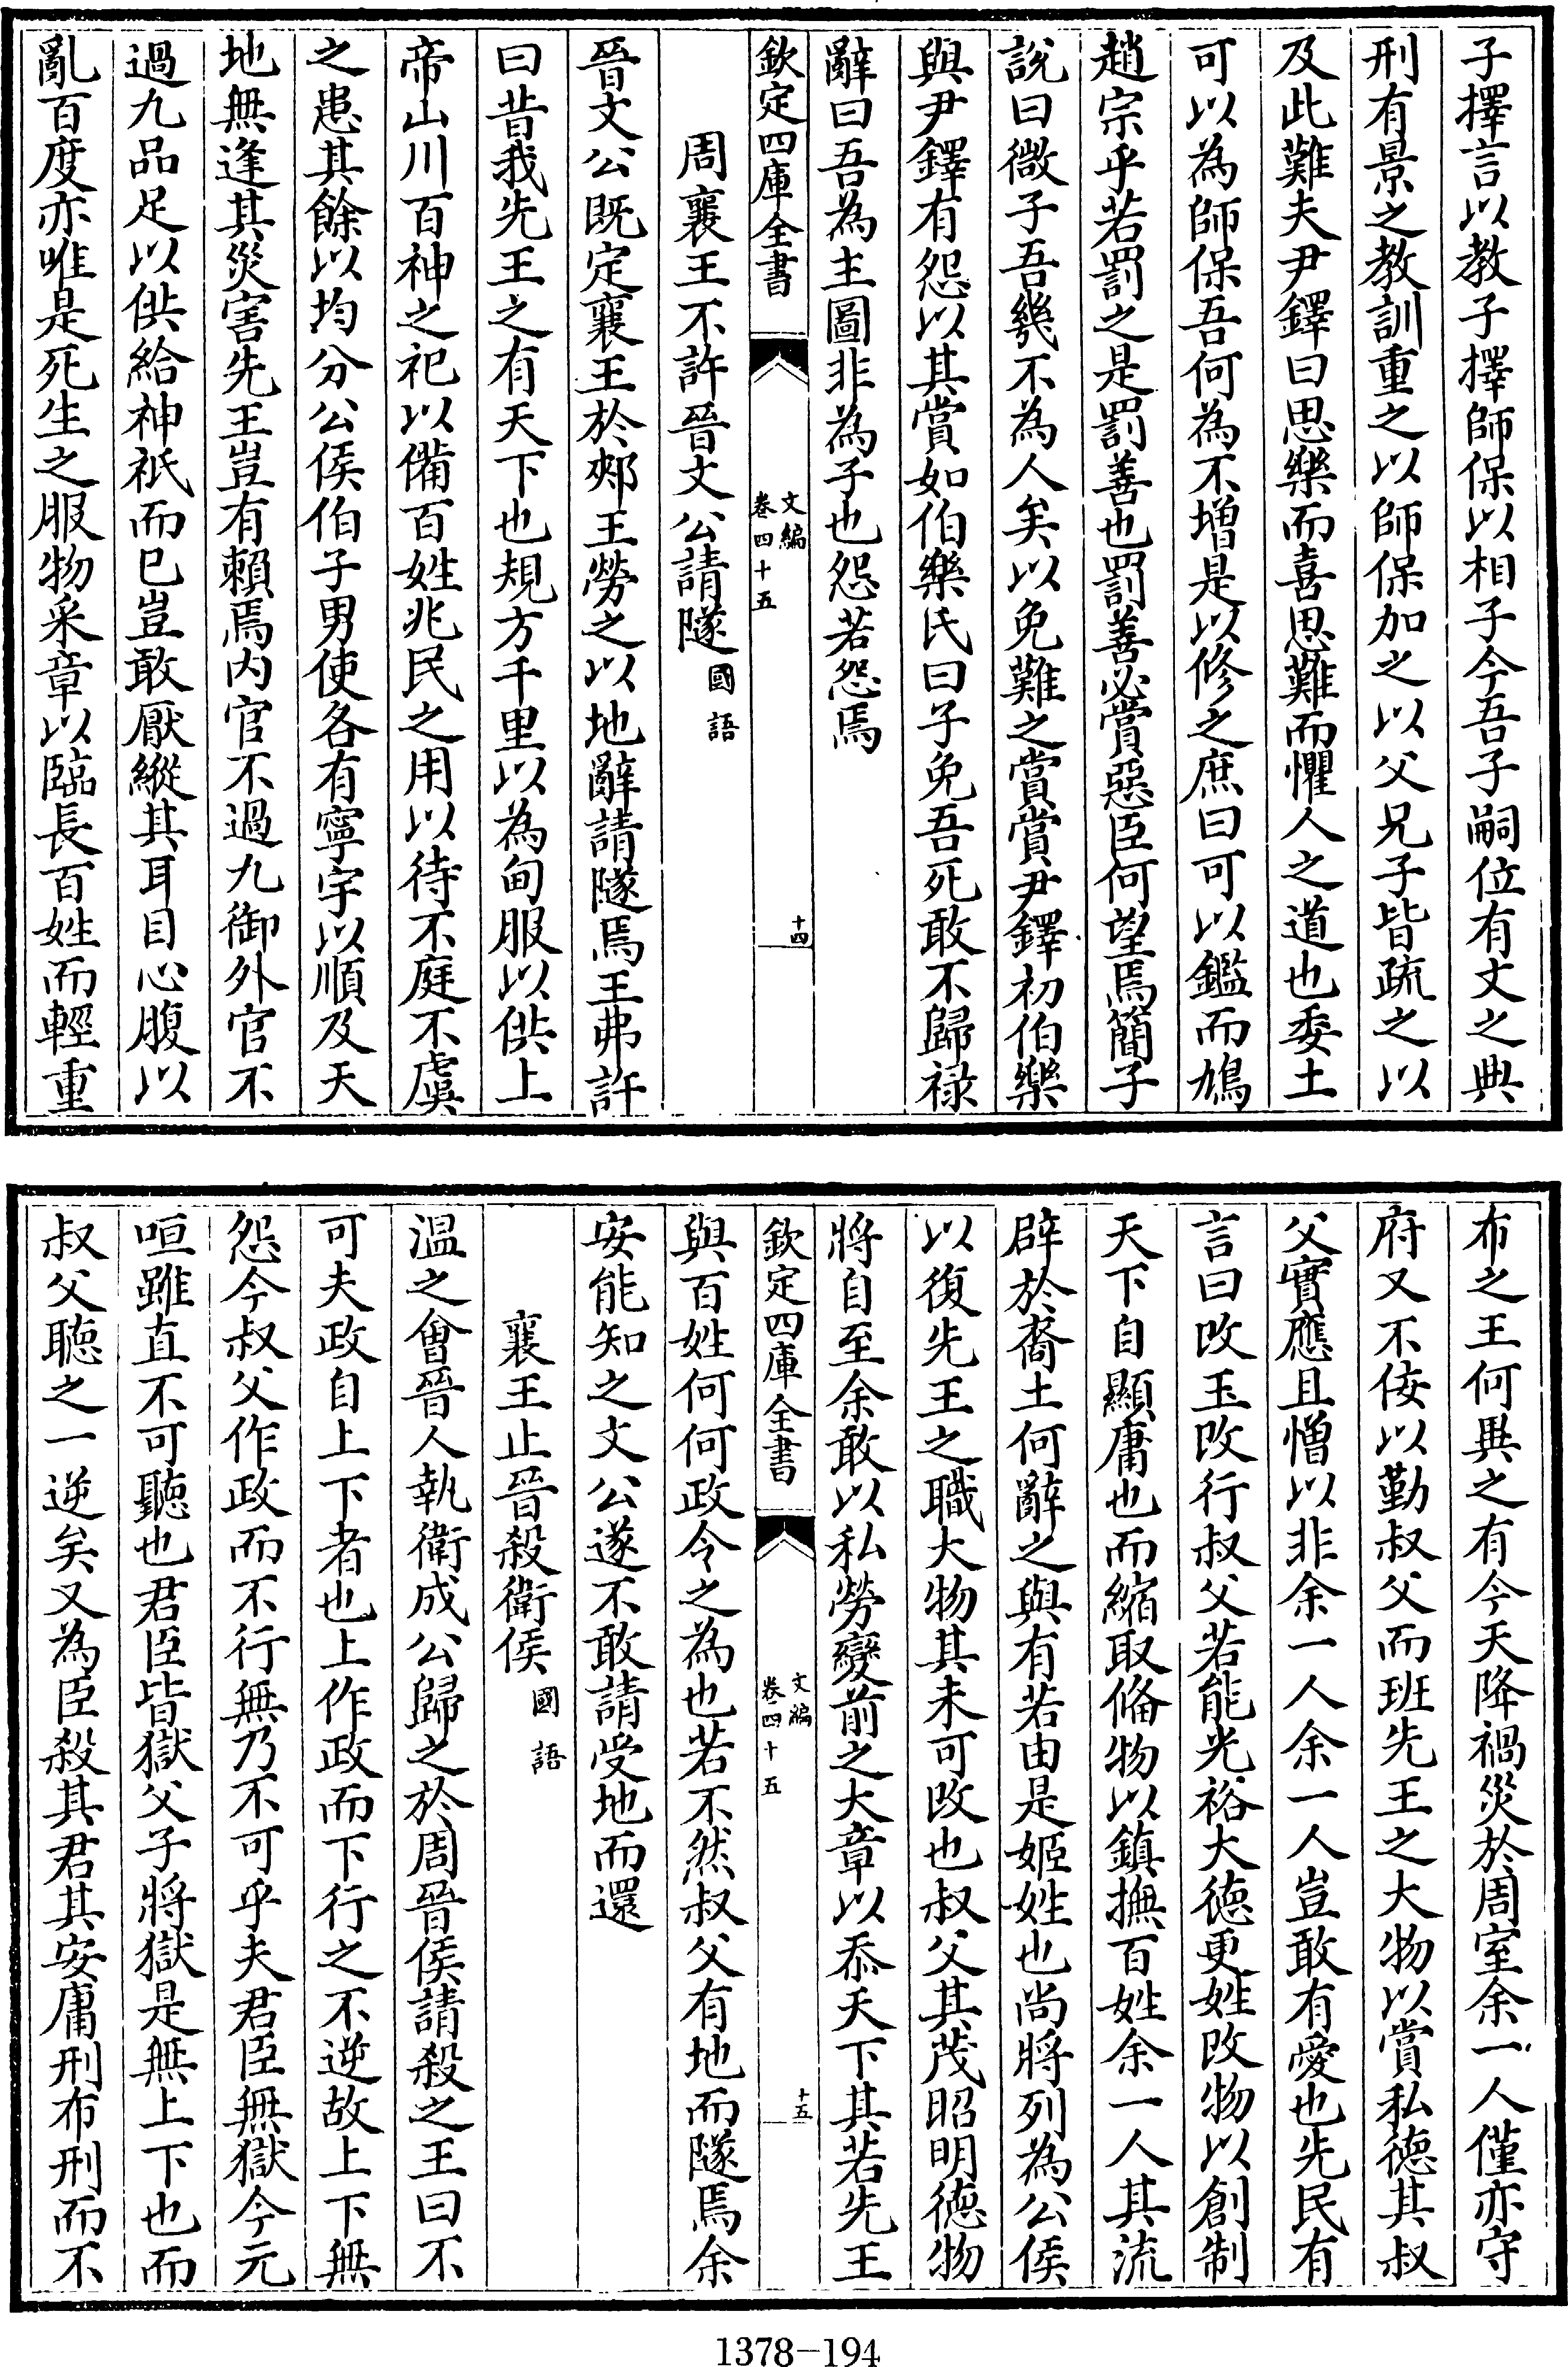 子擇言以教子擇師保以相子今吾子嗣位有文之典
刑有景之教訓重之以師保加之以父兄子皆疏之以
及此難夫尹鐸曰思樂而喜思難而懼人之道也委土
可以為師保吾何為不增是以修之庶曰可以鑑而鳩
趙宗乎若罰之是罰善也罰善必賞惡臣何望焉簡子
說曰微子吾幾不為人矣以免難之賞賞尹鐸初伯樂
與尹鐸有怨以其賞如伯樂氏曰子免吾死敢不歸禄
辭曰吾為主圖非為子也怨若怨焉
欽定四庫全書
文編
卷四十五
十四
周襄王不許晉文公請隧國語
晉文公既定襄王於郟王勞之以地辭請隧焉王弗許
曰昔我先王之有天下也規方千里以為甸服以供上
帝山川百神之祀以備百姓兆民之用以待不庭不虞
之患其餘以均分公侯伯子男使各有寧宇以順及天
地無逢其災害先王豈有賴焉内官不過九御外官不
過九品足以供給神祇而已豈敢厭縱其耳目心腹以
亂百度亦唯是死生之服物采章以臨長百姓而輕重
布之王何異之有今天降禍災於周室余一人僅亦守
府又不佞以勤叔父而班先王之大物以賞私德其叔
父實應且憎以非余一人余一人豈敢有愛也先民有
言曰改玉改行叔父若能光裕大德更姓改物以創制
天下自顯庸也而縮取備物以鎮撫百姓余一人其流
辟於裔土何辭之與有若由是姬姓也尚將列為公侯
以復先王之職大物其未可改也叔父其茂昭明德物
將自至余敢以私勞變前之大章以忝天下其若先王
欽定四庫全書
文編
卷四十五
十五
與百姓何何政令之為也若不然叔父有地而隧焉余
安能知之文公遂不敢請受地而還
襄王止晉殺衛侯國語
温之會晉人執衛成公歸之於周晉侯請殺之王曰不
可夫政自上下者也上作政而下行之不逆故上下無
怨今叔父作政而不行無乃不可乎夫君臣無獄今元
咺雖直不可聽也君臣皆獄父子將獄是無上下也而
叔父聽之一逆矣又為臣殺其君其安庸刑布刑而不
1378-194